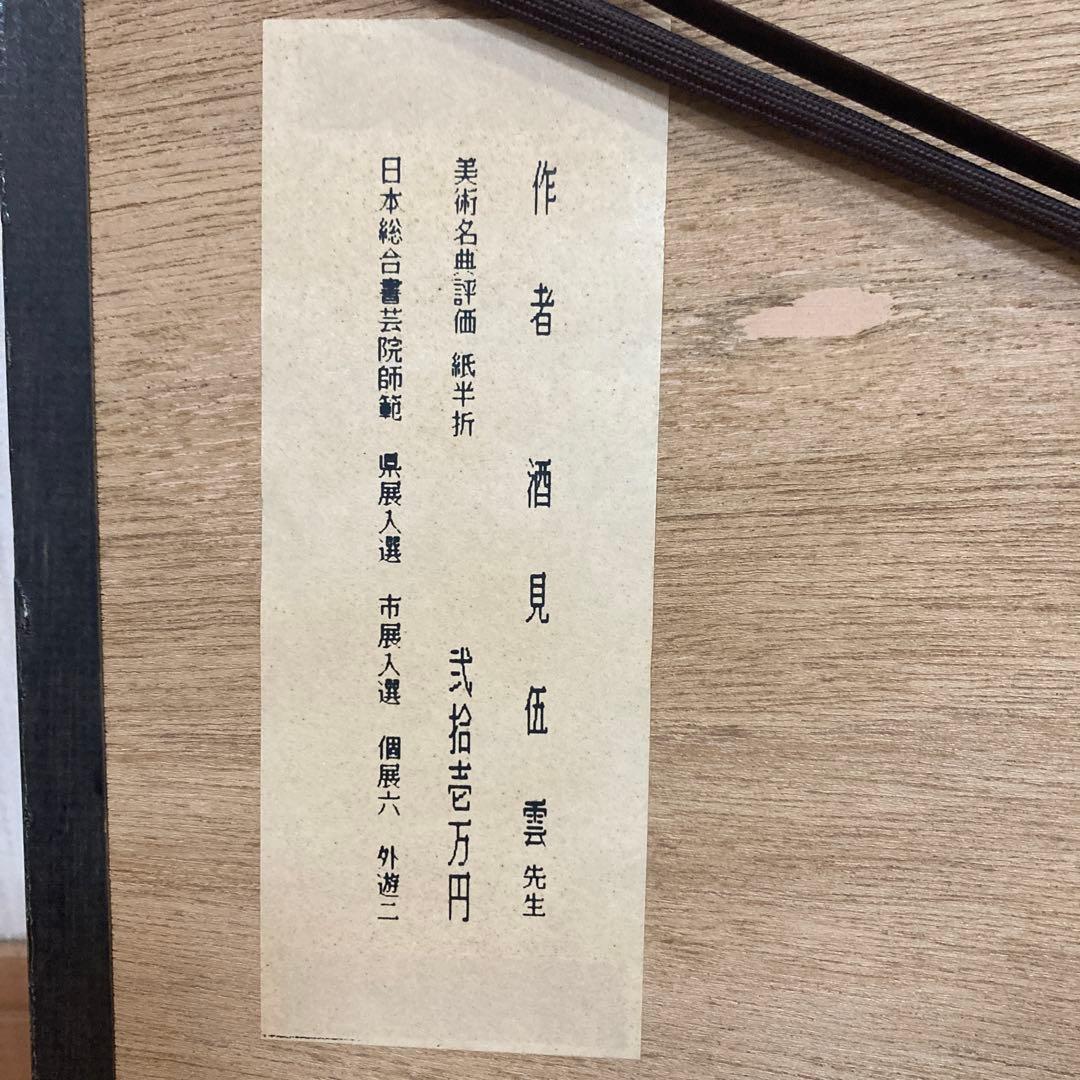 作者 酒見伍雲先生
美術名典評価 紙半折 弐拾壱万円
日本総合書芸院師範 県展入選 市展入選 個展六 外遊二